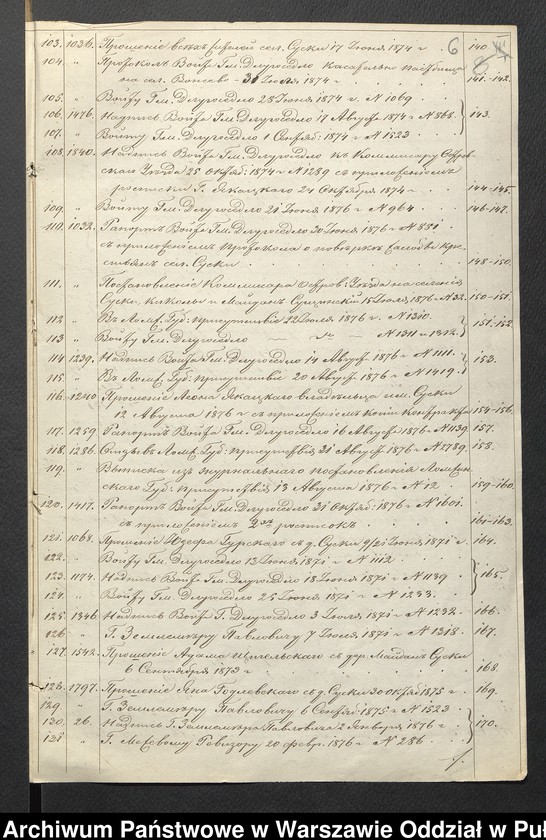 6
103. 1036. Прошеніе всѣхъ сел. Суски 17 Іюня 1874 г. 140.
104. " Протоколъ Войта Гм. Длугоседло касательно
на сел. 30 Іюля 1874 г. 141-142.
105. " Войту Гм. Длугоседло 28 Іюня 1874 г. N 1069
106. 1476. Надпись Войта Гм. Длугоседло 17 Августа 1874 г. N 868. 143.
107. " Войту Гм. Длугоседло 1 Сентяб. 1874 г. N 1523
108. 1840. Надпись Войта Гм. Длугоседло къ Коммисару Остров-
скаго Уѣзда 25 Октяб. 1874 г. N 1289 съ приложеніемъ
росписки Г. 24 Октября 1874 г. 144-145.
109. " Войту Гм. Длугоседло 21 Іюня 1876 г. N 964 146-147.
110. 1032. Рапортъ Войта Гм. Длугоседло 30 Іюня 1876 г. N 851
съ приложеніемъ протокола о повѣркѣ жалобы кре-
стьянъ сел. Суски 148-150.
111. " Постановленіе Коммисара Остров. Уѣзда на селенія
Суски, и Майданъ 15 Іюля 1876 г. N 32. 150-151.
112. " Въ Ломж. Губ. присутствіе 22 Іюля 1876 г. N 1310. 151-152.
113 " Войту Гм. Длугоседло N 1311 и 1312.
114 1239. Надпись Войта Гм. Длугоседло 14 Август 1876 г. N 1111. 153.
115. " Въ Ломж. Губ. присутствіе 20 Август 1876 г. N 1419.
116. 1240 Прошеніе Леона владѣльца им. Суски
12 Августа 1876 г. съ приложеніемъ копіи контракта 154-156.
117. 1259 Рапортъ Войта Гм. Длугоседло 16 Августа 1876 г. N 1139. 157.
118. 1286. Ломж. Губ. присутствія 31 Август 1876 г. N 2789. 158.
119. " Выписка изъ журнальнаго постановленія Ломжин-
скаго Губ. присутствія 13 Августа 1876 г. N 12. 159-160.
120. 1417. Рапортъ Войта Гм. Длугоседло 21 Октяб. 1876 г. N 1601.
съ приложеніемъ 2хъ росписокъ 161-163.
121. 1068. Прошеніе Юзефа Гурскаго съ д. Суски 9/21 Іюня 1871 г. 164.
122. " Войту Гм. Длугоседло 12 Іюня 1871 г. N 1112
123. 1174. Надпись Войта Гм. Длугоседло 18 Іюня 1871 г. N 1139 165.
124. " Войту Гм. Длугоседло 25 Іюня 1871 г. N 1233.
125. 1346. Надпись Войта Г. Длугоседло 3 Іюля 1871 г. N 1232. 166.
126. " Г. Землемѣру Павловичу 7 Іюля 1871 г. N 1318. 167.
127. 1542. Прошеніе Адама съ дер. Майданъ Суски
6 Сентября 1873 г. 168.
128. 1797. Прошеніе Яна Годлевскаго съ д. Суски 30 Октяб. 1875 г. 169.
129. " Г. Землемѣру Павловичу 6 1875 г. N 1523
130. 26. Надпись Г. Землемѣра Павловича 2 Января 1876 г. 170.
131 " Г. Межевому Ревизору 20 февр. 1876 г. N 286.
Archiwum Państwowe w Warszawie Oddział w Puł